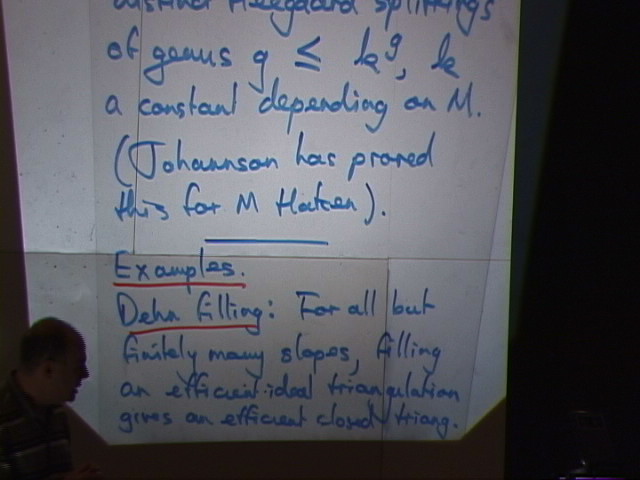 distinct Heegaard splittings
of genus g ≤ k^g, k
a constant depending on M.
(Johannson has proved
this for M Haken).
Examples.
Dehn filling: For all but
finitely many slopes, filling
an efficient ideal triangulation
gives an efficient closed triang.